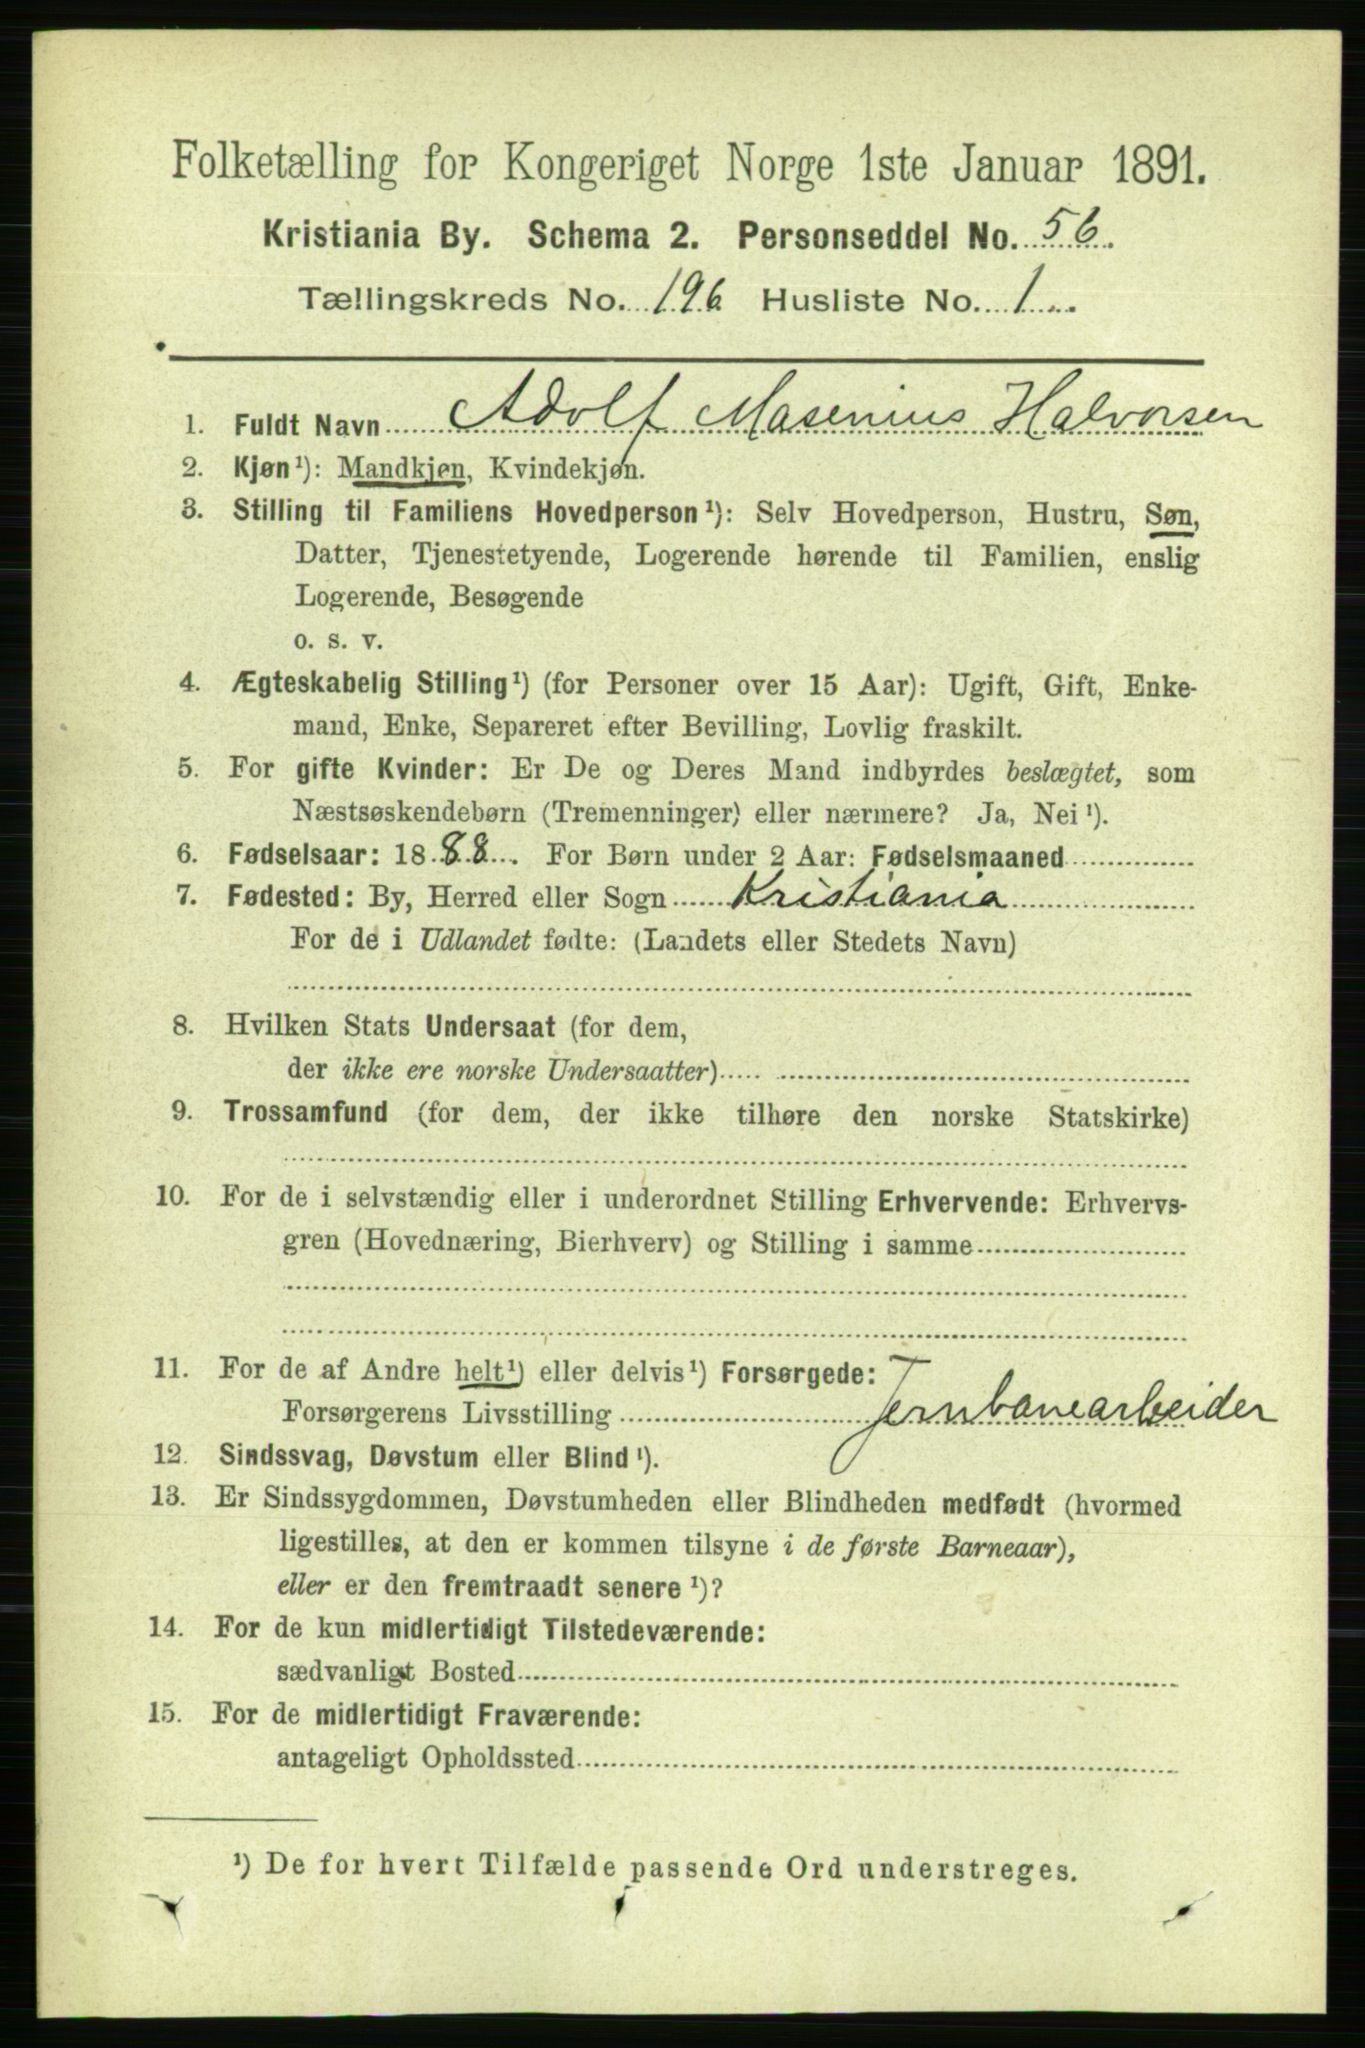 Folketælling for Kongeriget Norge 1ste Januar 1891.
Kristiania By. Schema 2. Personseddel No. 56.
Tællingskreds No. 196 Husliste No. 1
1. Fuldt Navn Adolf Masenius Halvorsen
2. Kjøn¹): Mandkjøn, Kvindekjøn.
3. Stilling til Familiens Hovedperson¹): Selv Hovedperson, Hustru, Søn,
Datter, Tjenestetyende, Logerende hørende til Familien, enslig
Logerende, Besøgende
o. s. v.
4. Ægteskabelig Stilling¹) (for Personer over 15 Aar): Ugift, Gift, Enke-
mand, Enke, Separeret efter Bevilling, Lovlig fraskilt.
5. For gifte Kvinder: Er De og Deres Mand indbyrdes beslægtet, som
Næstsøskendebørn (Tremenninger) eller nærmere? Ja, Nei¹).
6. Fødselsaar: 1888. For Børn under 2 Aar: Fødselsmaaned
7. Fødested: By, Herred eller Sogn Kristiania
For de i Udlandet fødte: (Landets eller Stedets Navn)
8. Hvilken Stats Undersaat (for dem,
der ikke ere norske Undersaatter)
9. Trossamfund (for dem, der ikke tilhøre den norske Statskirke)
10. For de i selvstændig eller i underordnet Stilling Erhvervende: Erhvervs-
gren (Hovednæring, Bierhverv) og Stilling i samme
11. For de af Andre helt¹) eller delvis¹) Forsørgede:
Forsørgerens Livsstilling Jernbanearbeider
12. Sindssvag, Døvstum eller Blind¹).
13. Er Sindssygdommen, Døvstumheden eller Blindheden medfødt (hvormed
ligestilles, at den er kommen tilsyne i de første Barneaar),
eller er den fremtraadt senere¹)?
14. For de kun midlertidigt Tilstedeværende:
sædvanligt Bosted
15. For de midlertidigt Fraværende:
antageligt Opholdssted
¹) De for hvert Tilfælde passende Ord understreges.